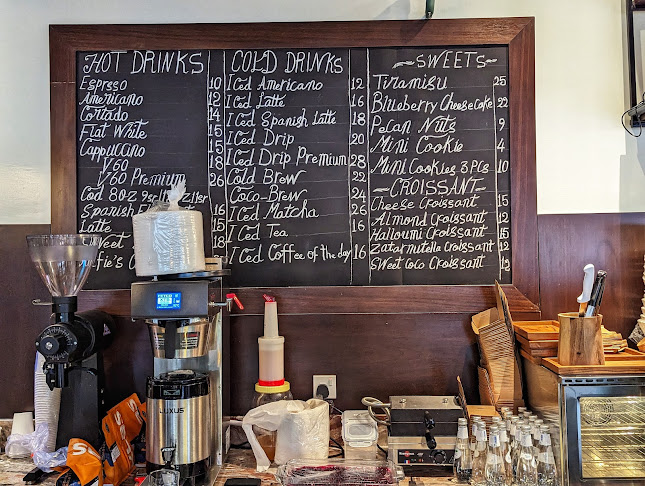 HOT DRINKS
Esprsso 10
Americano 12
Cortado 14
Flat White 15
Cappuccino 15
V60 18
V60 Premium 26
Cod 8oz
Spanish 16
Latte 15
Sweet
COLD DRINKs
Iced Americano 12
Iced Latte 16
Iced Spanish Latte 18
Iced Drip 20
Iced Drip Premium 28
Cold Brew 22
Coco-Brew 24
Iced Matcha 26
Iced Tea 16
Iced Coffee of the day 16
~SWEETs~
Tiramisu 25
Blueberry CheeseCake 22
Pecan Nuts 9
Mini Cookie 4
Mini Cookies 3 PCs 10
~CROISSANT~
Cheese Croissant 15
Almond Croissant 12
Halloumi Croissant 15
Zatar nutella Croissant 12
Sweet Coco Croissant 12
LUXUS